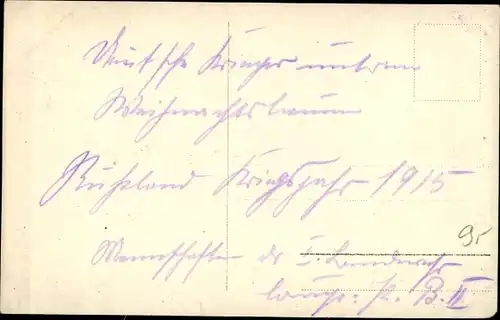 Deutsche Krieger unterm
Weihnachtsbaum
Rußland Kriegsjahr 1915
95
Mannschaften der I. Landwehr
B. II